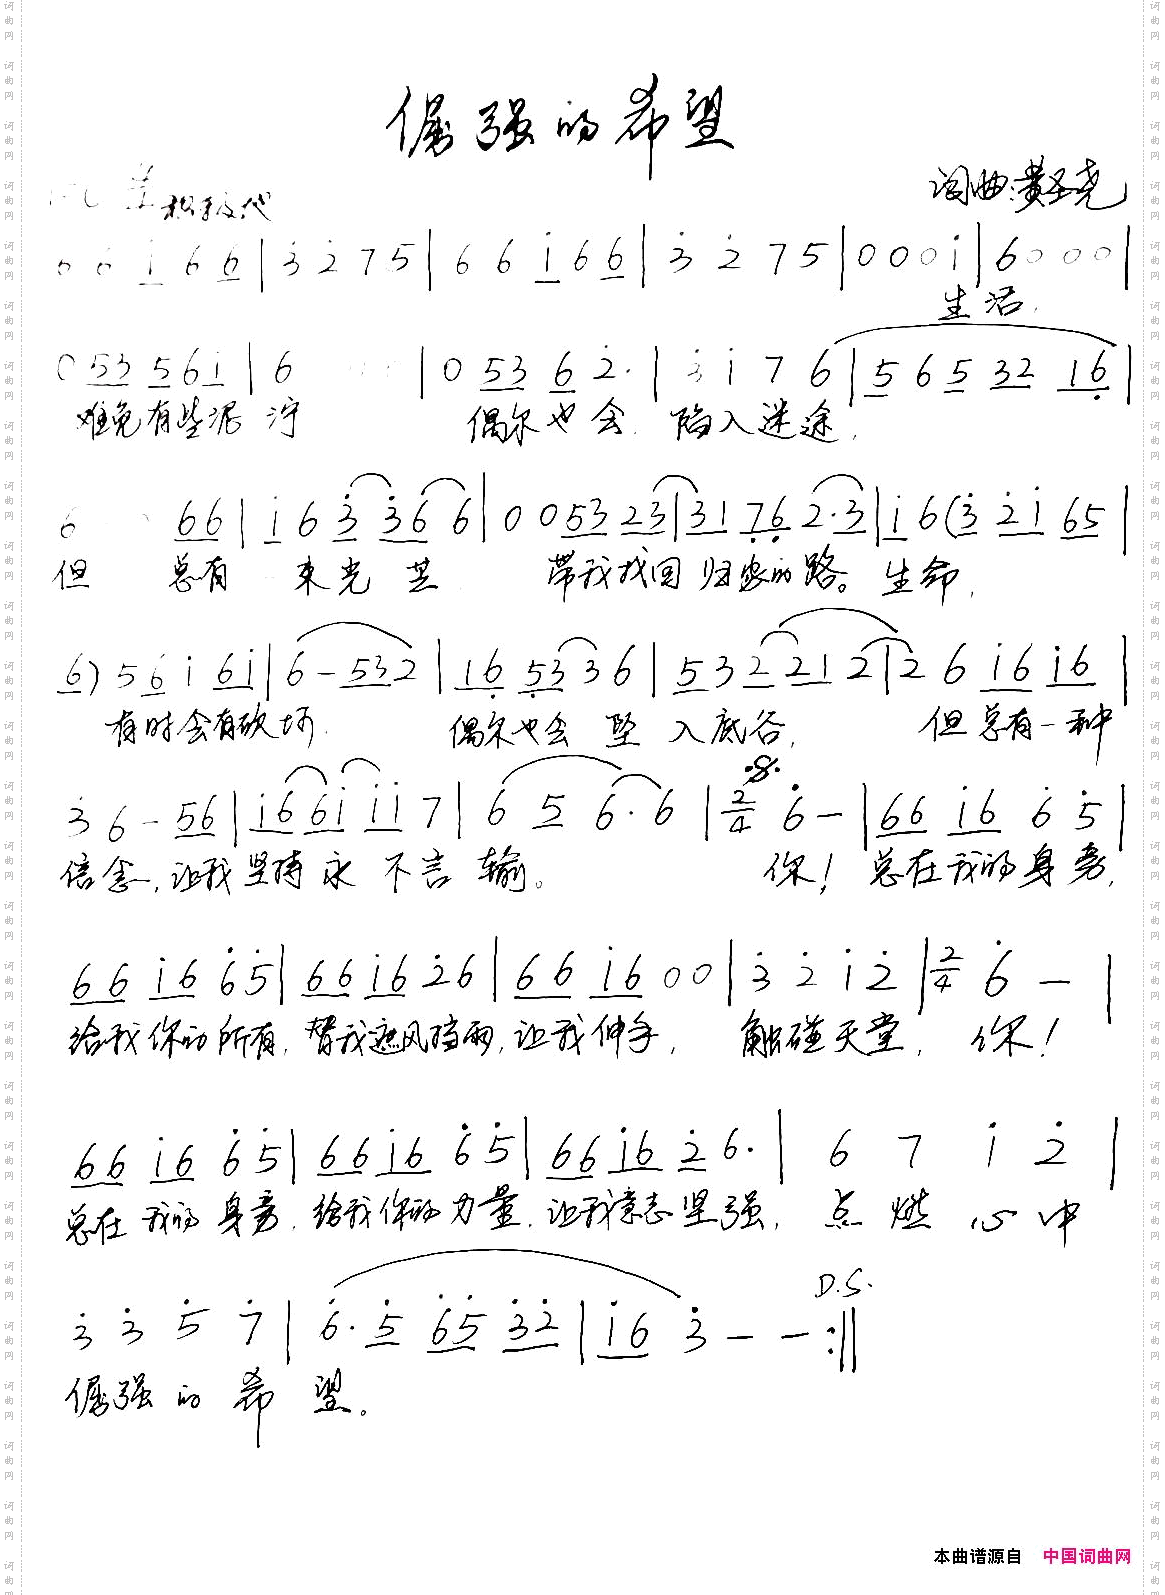 倔强的希望
词曲:黄圣尧
6 6 i 6 6 | 3 2 7 5 | 6 6 i 6 6 | 3 2 7 5 | 0 0 0 i | 6 0 0 0 |
生活.
0 53 56i | 6 | 0 53 6 2· | 3 i 7 6 | 5 6 5 32 16 |
难免有些泥泞 偶尔也会 陷入迷途.
6 66 | i 6 3 36 6 | 0 0 53 23 | 31 76 2·3 | i 6 (3 2i 65 |
但 总有一束光芒 带我找回归家的路。生命,
6) 5 6 i 6i | 6 - 532 | 16 53 3 6 | 5 3 2 21 2 | 2 6 i6 i6 |
有时会有砍坷. 偶尔也会坠入底谷, 但总有一种
3 6 - 56 | i6 6i ii 7 | 6 5 6· 6 | 2/4 6 - | 66 i6 6 5 |
信念,让我坚持永不言输。 你! 总在我的身旁,
66 i6 65 | 66 i6 26 | 66 i6 00 | 3 2 i 2 | 2/4 6 - |
给我你的所有,替我遮风挡雨,让我伸手, 触碰天堂, 你!
66 i6 65 | 66 i6 65 | 66 i6 2 6· | 6 7 i 2 |
总在我的身旁,给我你的力量,让我意志坚强,点燃心中
D.S.
3 3 5 7 | 6· 5 65 32 | i6 3 - - :||
倔强的希望。
本曲谱源自 中国词曲网